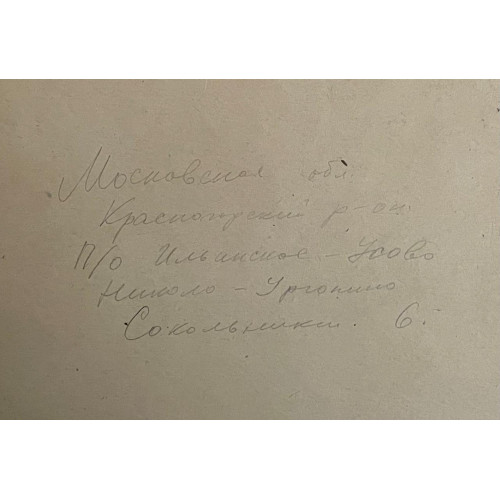 Московская обл.
Краснонгуский р-он.
П/о Ильинское-Усово
Николо-Урюпино
Сокольники. 6.